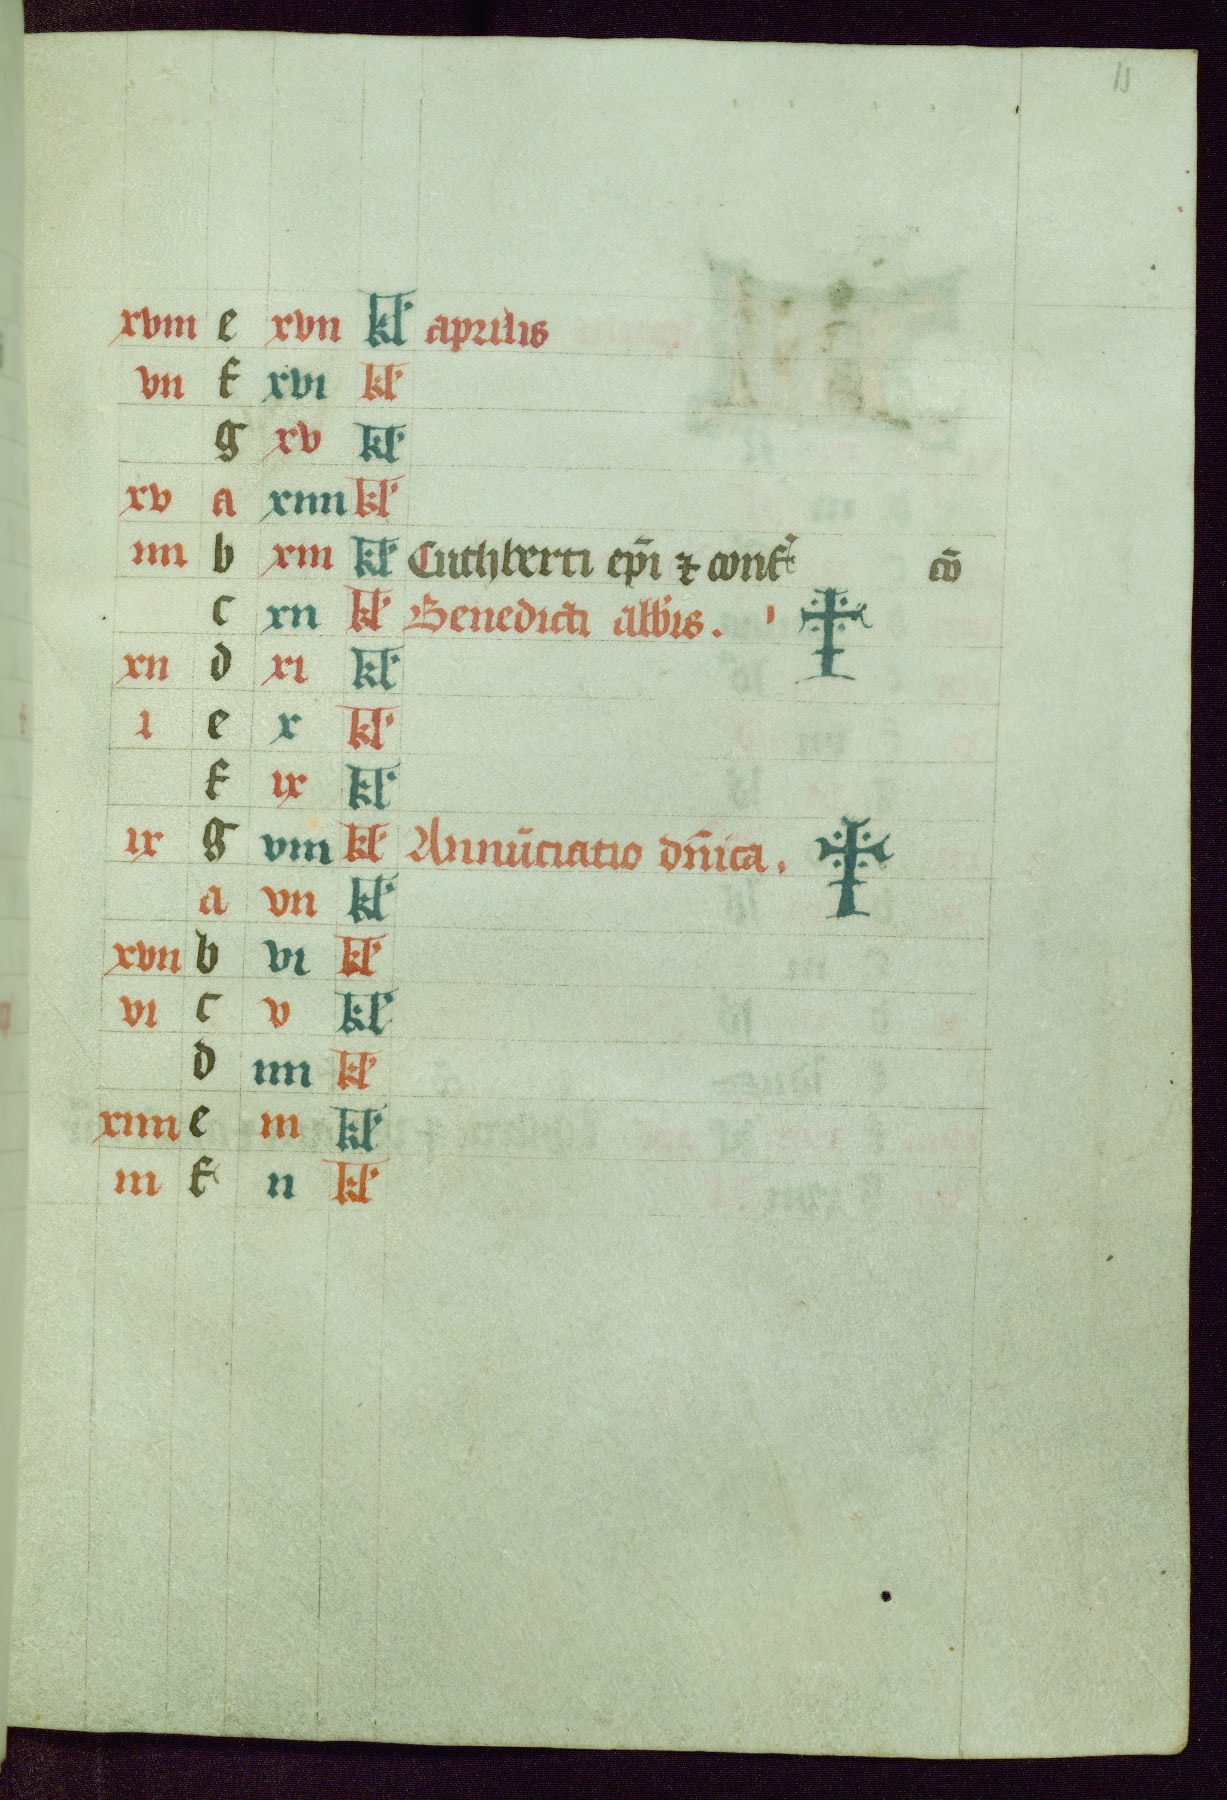 xviii e xvii kl aprilis
vii f xvi kl
g xv kl
xv a xiiii kl
iiii b xiii kl Cuthberti ep̄i ⁊ conf' co͞
c xii kl Benedicti abb̄is.
xii d xi kl
i e x kl
f ix kl
ix g viii kl Annūciatio dn̄ica.
a vii kl
xvii b vi kl
vi c v kl
d iiii kl
xiiii e iii kl
iii f ii kl